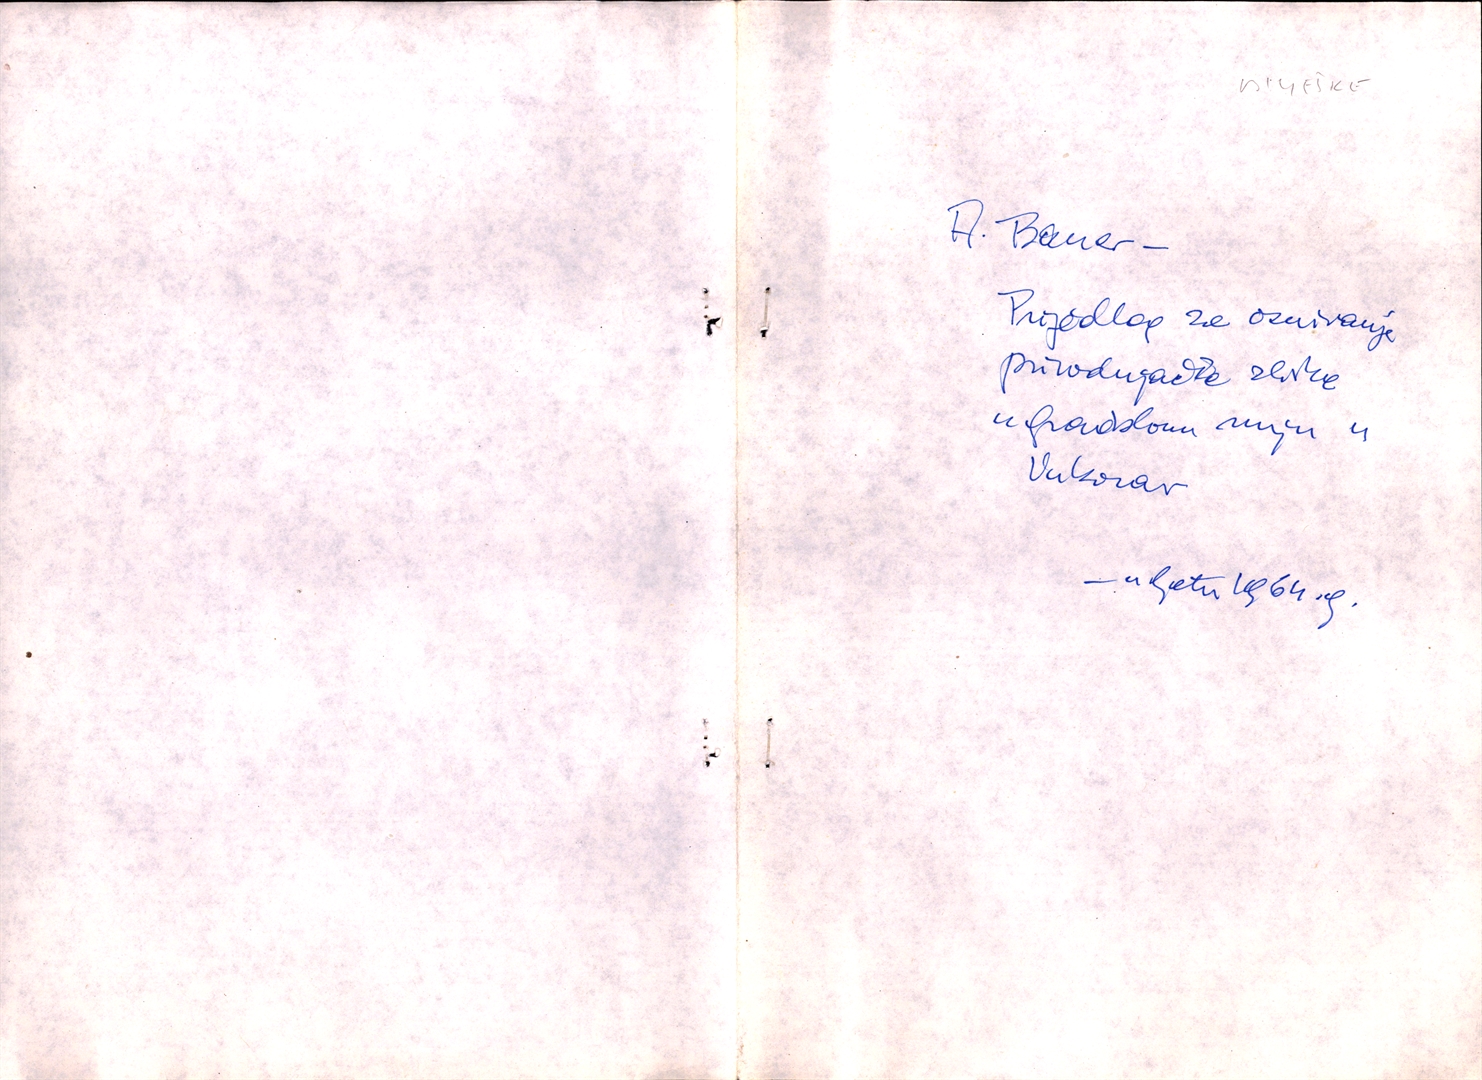 BILJEŠKE
A. Bauer –
Prijedlog za osnivanje
prirodnjačke zbirke
u gradskom muzeju u
Vukovar
– u ljetu 1964. g.